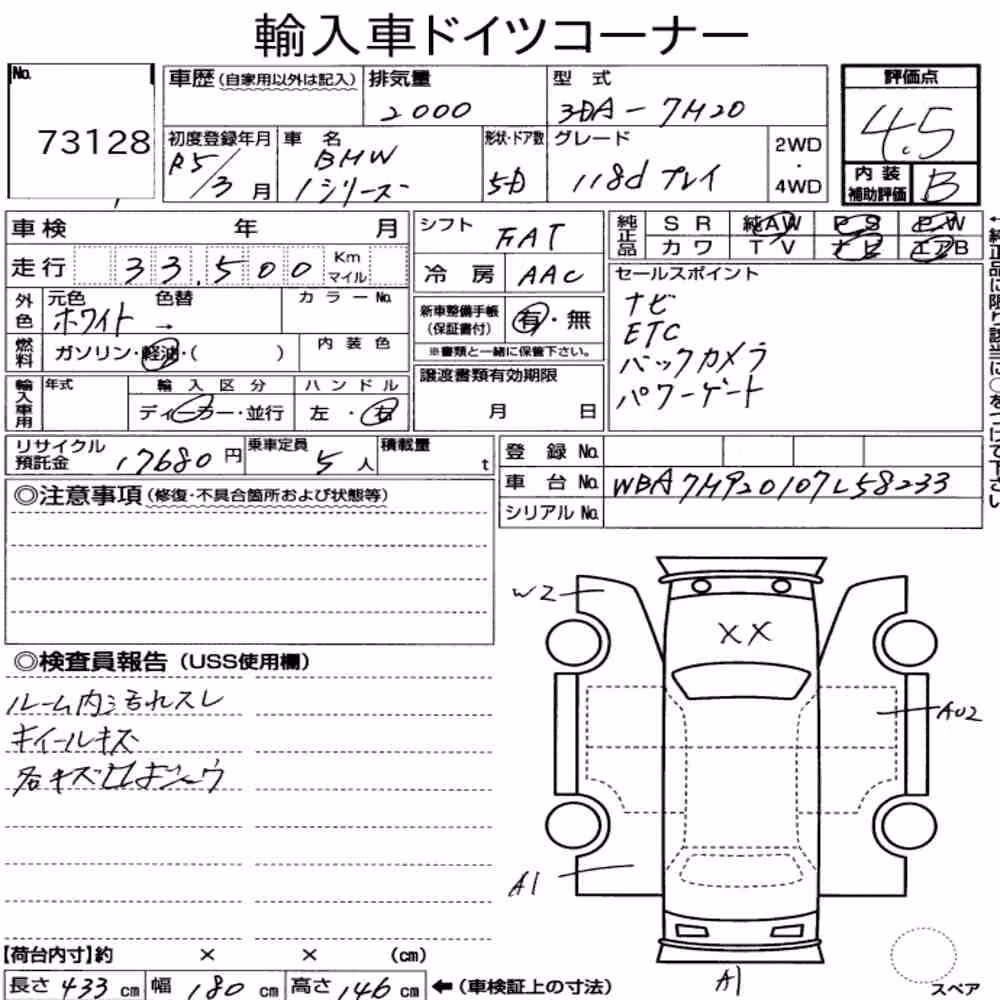 輸入車ドイツコーナー
No.
73128
車歴 (自家用以外は記入)
排気量
2000
型式
3DA-7M20
評価点
4.5
内装補助評価
B
初度登録年月
R5/3月
車名
BMW
1シリーズ
形状・ドア数
5D
グレード
118d プレイ
2WD
・
4WD
車検 年 月
シフト
FAT
純正品
SR 純AW PS PW
カワ TV ナビ エアB
走行 33,500 Km マイル
冷房 AAC
セールスポイント
ナビ
ETC
バックカメラ
パワーゲート
外色
元色 色替 カラーNo.
ホワイト →
新車整備手帳(保証書付)
有・無
※書類と一緒に保管下さい。
燃料
ガソリン・軽油・( )
内装色
譲渡書類有効期限
月 日
輸入車用
年式
輸入区分
ハンドル
ディーラー・並行
左・右
リサイクル預託金 17680円
乗車定員 5人
積載量 t
登録No.
車台No. WBA7M920107L58233
シリアルNo.
◎注意事項(修復・不具合箇所および状態等)
◎検査員報告(USS使用欄)
ルーム内汚れスレ
ホイールキズ
W2
XX
AU2
A1
A1
スペア
【荷台内寸】約 × × (cm)
長さ 433 cm 幅 180 cm 高さ 146 cm ←(車検証上の寸法)